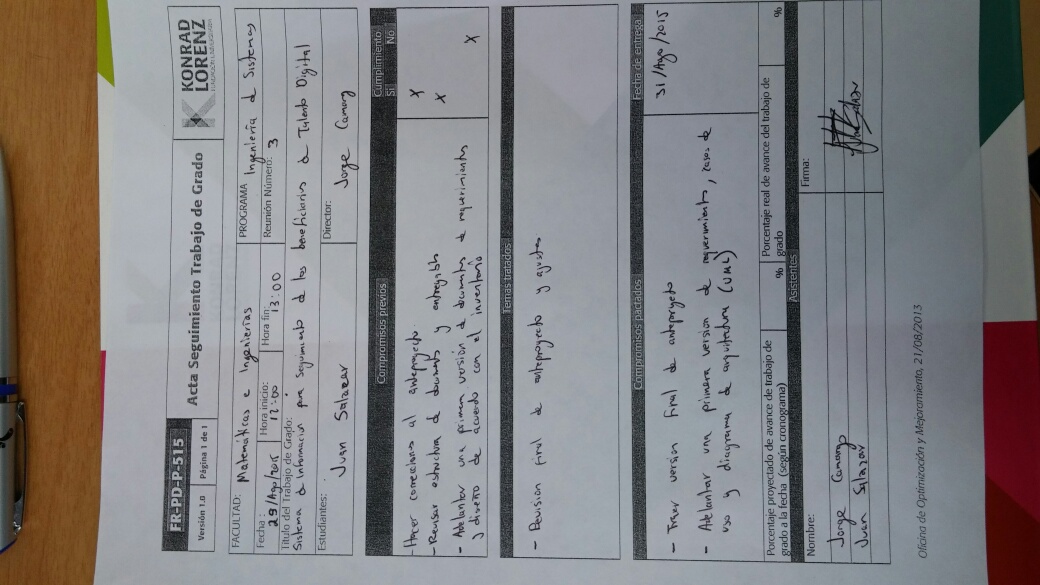 FR-PD-P-515
Versión 1.0 Página 1 de 1
Acta Seguimiento Trabajo de Grado
KONRAD
LORENZ
FUNDACIÓN UNIVERSITARIA
FACULTAD: Matemáticas e Ingenierías
PROGRAMA Ingeniería de Sistemas
Fecha : Hora inicio: Hora fin: Reunión Número: 3
29/Ago/2015 12:00 13:00
Título del Trabajo de Grado:
Sistema de Información para Seguimiento de los beneficiarios de Talento Digital
Estudiantes: Director:
Juan Salazar Jorge Camargo
Compromisos previos Cumplimiento
Si No
- Hacer correcciones al anteproyecto. X
- Revisar estructura de documento y entregables X
- Adelantar una primera versión de documentos de requerimientos
y diseño de acuerdo con el inventario X
Temas tratados
- Revision final de anteproyecto y ajustes
Compromisos pactados Fecha de entrega
31/Ago/2015
- Traer version final de anteproyecto
- Adelantar una primera version de requerimiento, casos de
uso y diagrama de arquitectura (UML)
Porcentaje proyectado de avance de trabajo de
grado a la fecha (según cronograma) %
Porcentaje real de avance del trabajo de
grado %
Asistentes
Nombre: Firma:
Jorge Camargo
Juan Salazar
Oficina de Optimización y Mejoramiento, 21/08/2013